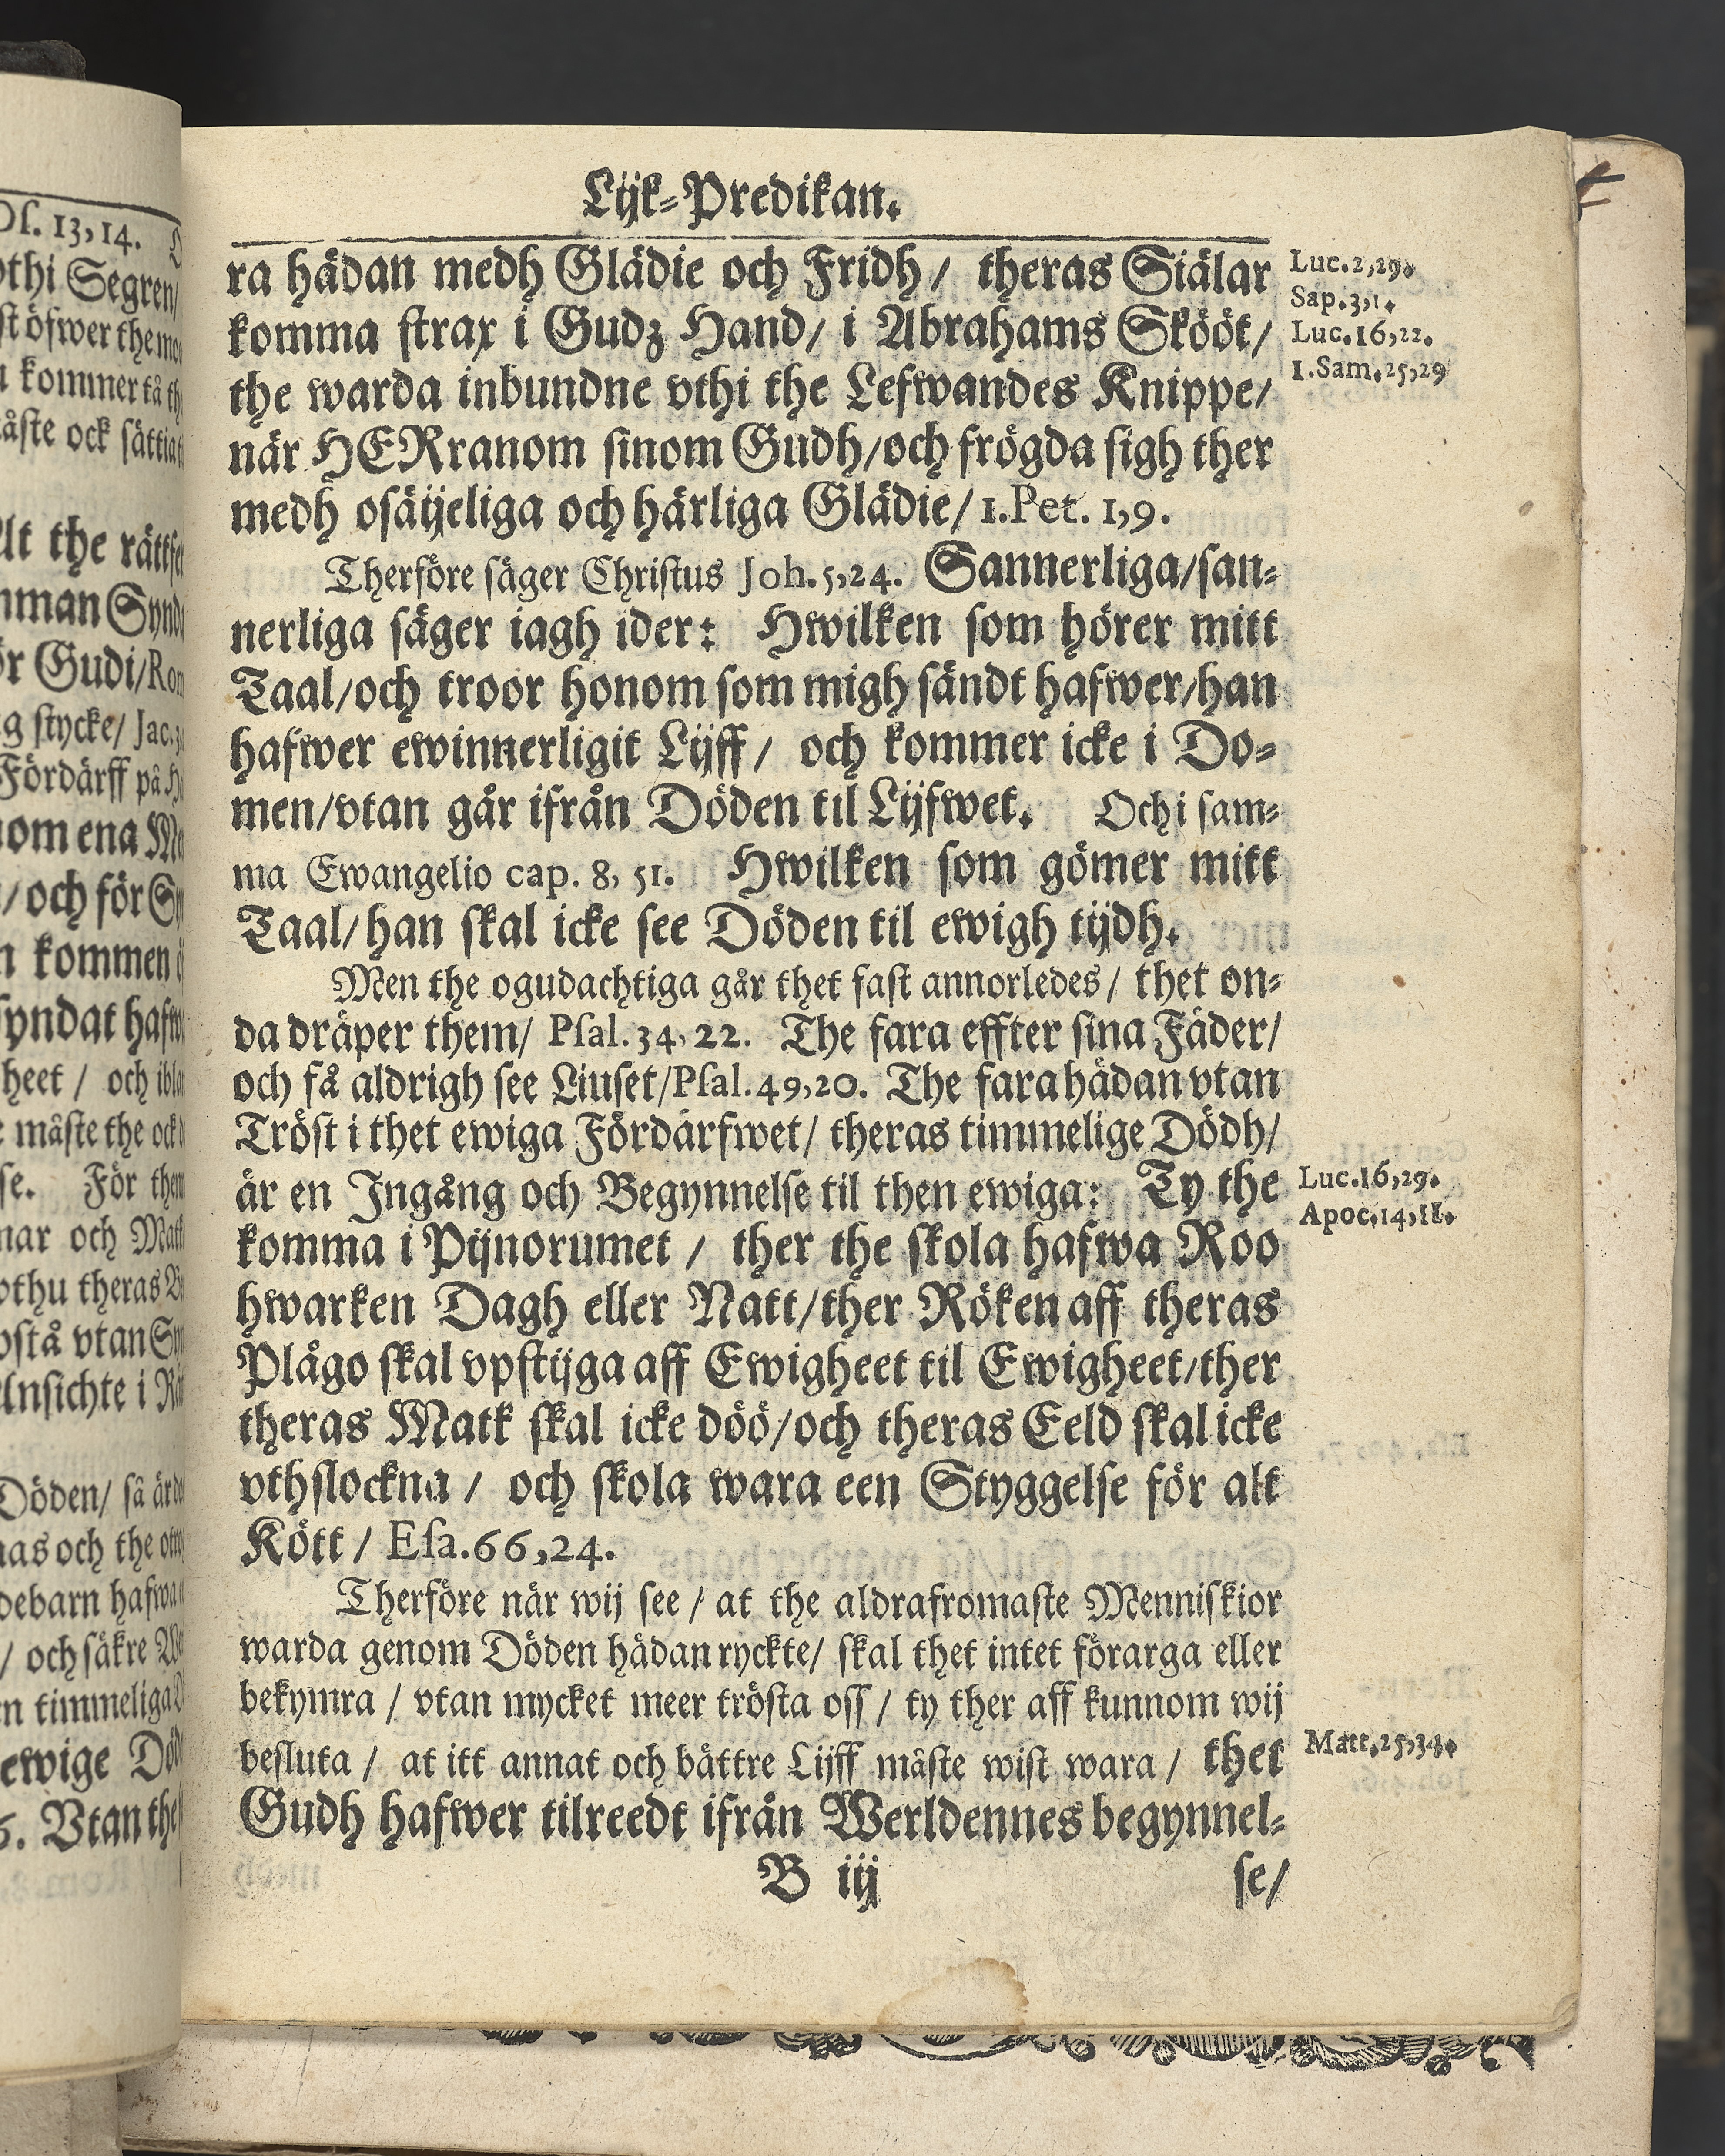 Lijk-Predikan.
ra hädan medh Glädie och Fridh / theras Siälar
komma strax i Gudz Hand / i Abrahams Skööt /
the warda inbundne vthi the Lefwandes Knippe /
när HERranom sinom Gudh / och frögda sigh ther
medh osäijeliga och härliga Glädie / 1.Pet. 1,9.
Therföre säger Christus Joh. 5,24. Sannerliga / san-
nerliga säger iagh ider: Hwilken som hörer mitt
Taal / och troor honom som migh sändt hafwer / han
hafwer ewinnerligit Lijff / och kommer icke i Do-
men / vtan går ifrån Döden til Lijfwet. Och i sam-
ma Ewangelio cap. 8, 51. Hwilken som gömer mitt
Taal / han skal icke see Döden til ewigh tijdh.
Men the ogudachtiga går thet fast annorledes / thet on-
da dräper them / Psal. 34, 22. The fara effter sina Fäder /
och få aldrigh see Liuset / Psal. 49,20. The fara hädan vtan
Tröst i thet ewiga Fördärfwet / theras timmelige Dödh /
är en Ingång och Begynnelse til then ewiga: Ty the
komma i Pijnorumet / ther the skola hafwa Roo
hwarken Dagh eller Natt / ther Röken aff theras
Plågo skal vpstijga aff Ewigheet til Ewigheet / ther
theras Matk skal icke döö / och theras Eeld skal icke
vthslockna / och skola wara een Styggelse för alt
Kött / Esa. 66,24.
Therföre när wij see / at the aldrafromaste Menniskior
warda genom Döden hädan ryckte / skal thet intet förarga eller
bekymra / vtan mycket meer trösta oss / ty ther aff kunnom wij
besluta / at itt annat och bättre Lijff måste wist wara / thet
Gudh hafwer tilreedt ifrån Werldennes begynnel-
B iij se /
Luc. 2,29.
Sap. 3,1.
Luc. 16,22.
1. Sam. 25,29
Luc. 16,29.
Apoc. 14,11.
Matt. 25,34.